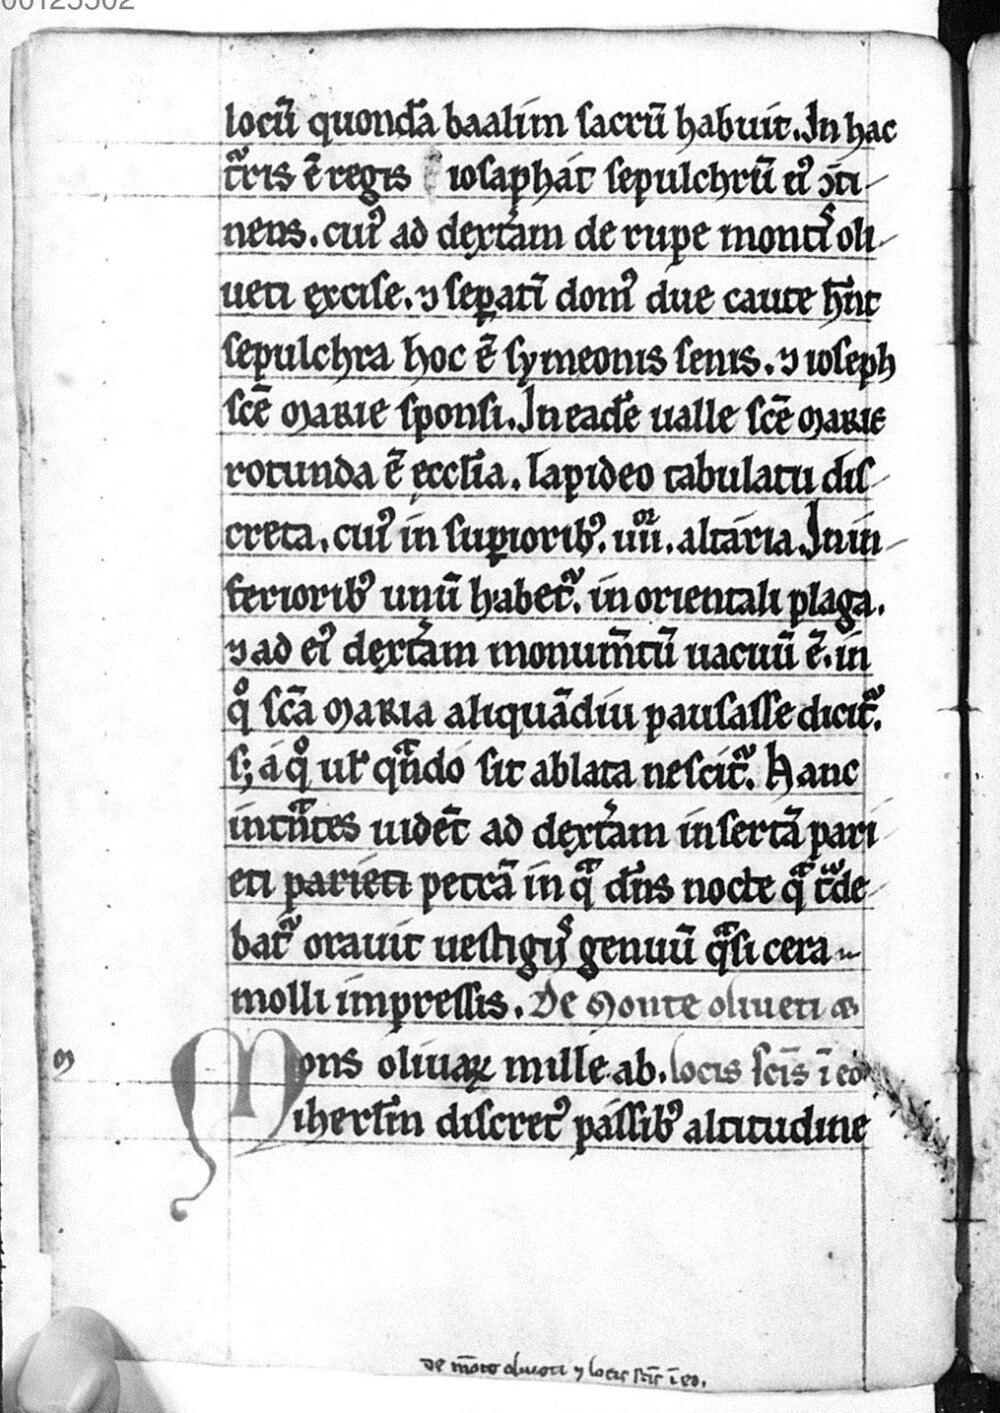 00125502
locū quondā baalim sacrū habuit. In hac
t᷑ris ē regis iosaphát sepulchrū eiꝰ ↄti
nens. cuiꝰ ad dext᷑am de rupe montis oli
ueti excise. ⁊ sepati domꝰ due caute hn̄t
sepulchra hoc ē symeonis senis. ⁊ ioseph
sc̄e marie sponsi. In eadē ualle sc̄e marie
rotunda ē eccl̄ia. lapideo tabulatu dis
creta. cuiꝰ in sup̱ioribꝰ. iiii^or. altaria. In in
ferioribꝰ unū habet᷑. in orientali plaga.
⁊ ad eiꝰ dext᷑am monum̄tū uacuū ē. in
q° sc̄a maria aliquādiu pausasse dicit᷑.
s; á q° ul̄ qn̄do sit ablata nescit᷑. Hanc
int̄ntes uidēt ad dext᷑am insertā pari
eti parieti petrā in qᵃ dn̄s nocte qᵃ t̄de
bat᷑ orauit uestigijs genuū qᵃsi cera
molli impressis. De monte oliueti ⁊
Mons oliuaꝝ mille ab. locis sc̄is ī eo
m
iherl̄m discretꝰ passibꝰ altitudine
de mōte oliueti ⁊ locis sc̄is ī eo.